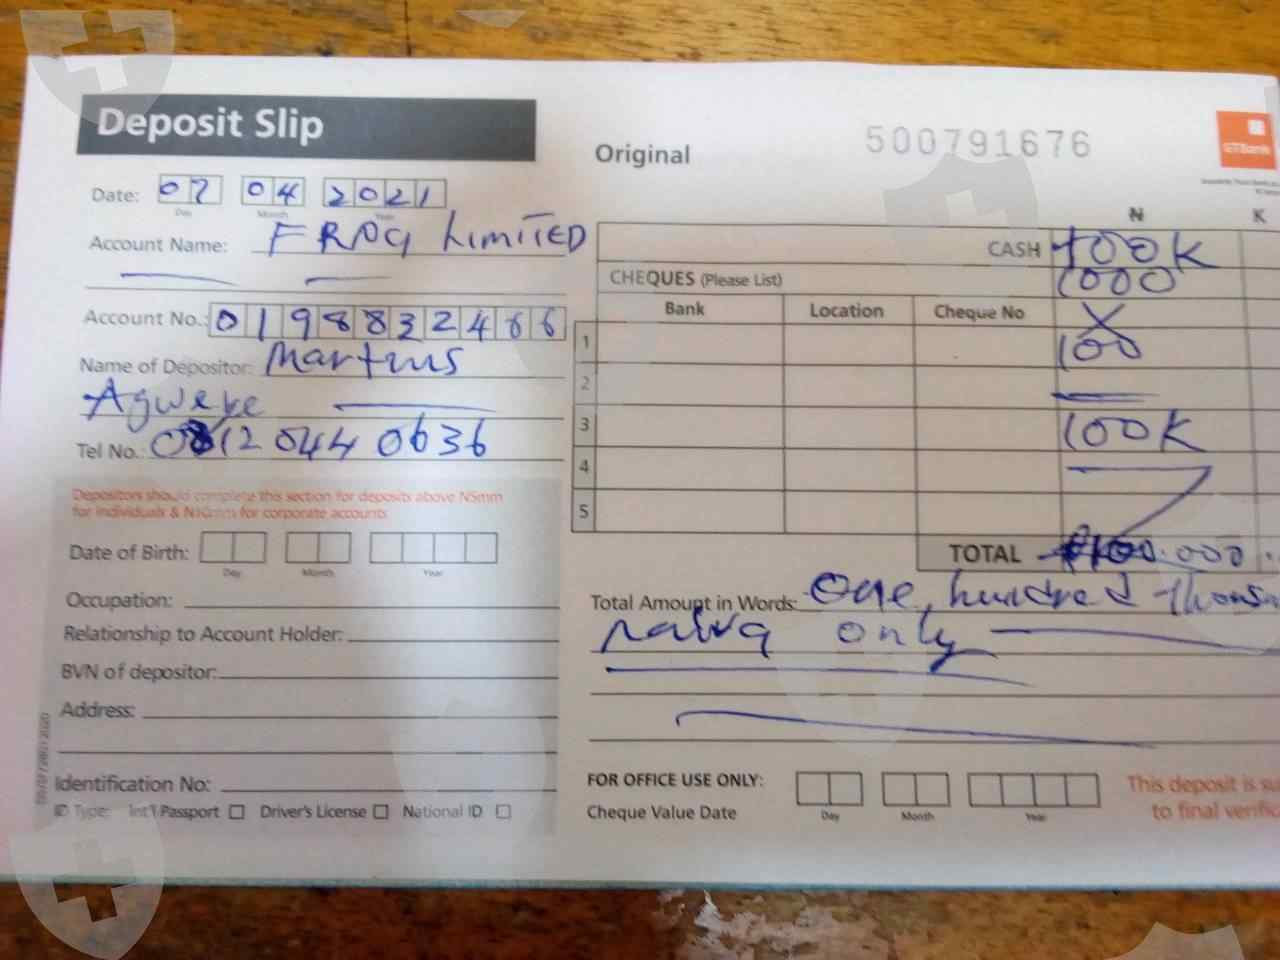 Deposit Slip
Original
500791676
GTBank
Date: 07 04 2021
Day Month Year
Account Name: FRPG LIMITED
N K
CASH 100K
CHEQUES (Please List) 1000
X
Account No.: 0198832466
Bank Location Cheque No
1 100
2
Name of Depositor: Martins
Agweye
3 100K
4
5
Tel No.: 0812 044 0636
Depositors should complete this section for deposits above N5mm
for individuals & N10mm for corporate accounts
TOTAL 100.000
Date of Birth:
Day Month Year
Total Amount in Words: One hundred thousan
naira only
Occupation:
Relationship to Account Holder:
BVN of depositor:
Address:
Identification No:
ID Type: Int'l Passport Driver's License National ID
FOR OFFICE USE ONLY:
Cheque Value Date
Day Month Year
This deposit is su
to final verific